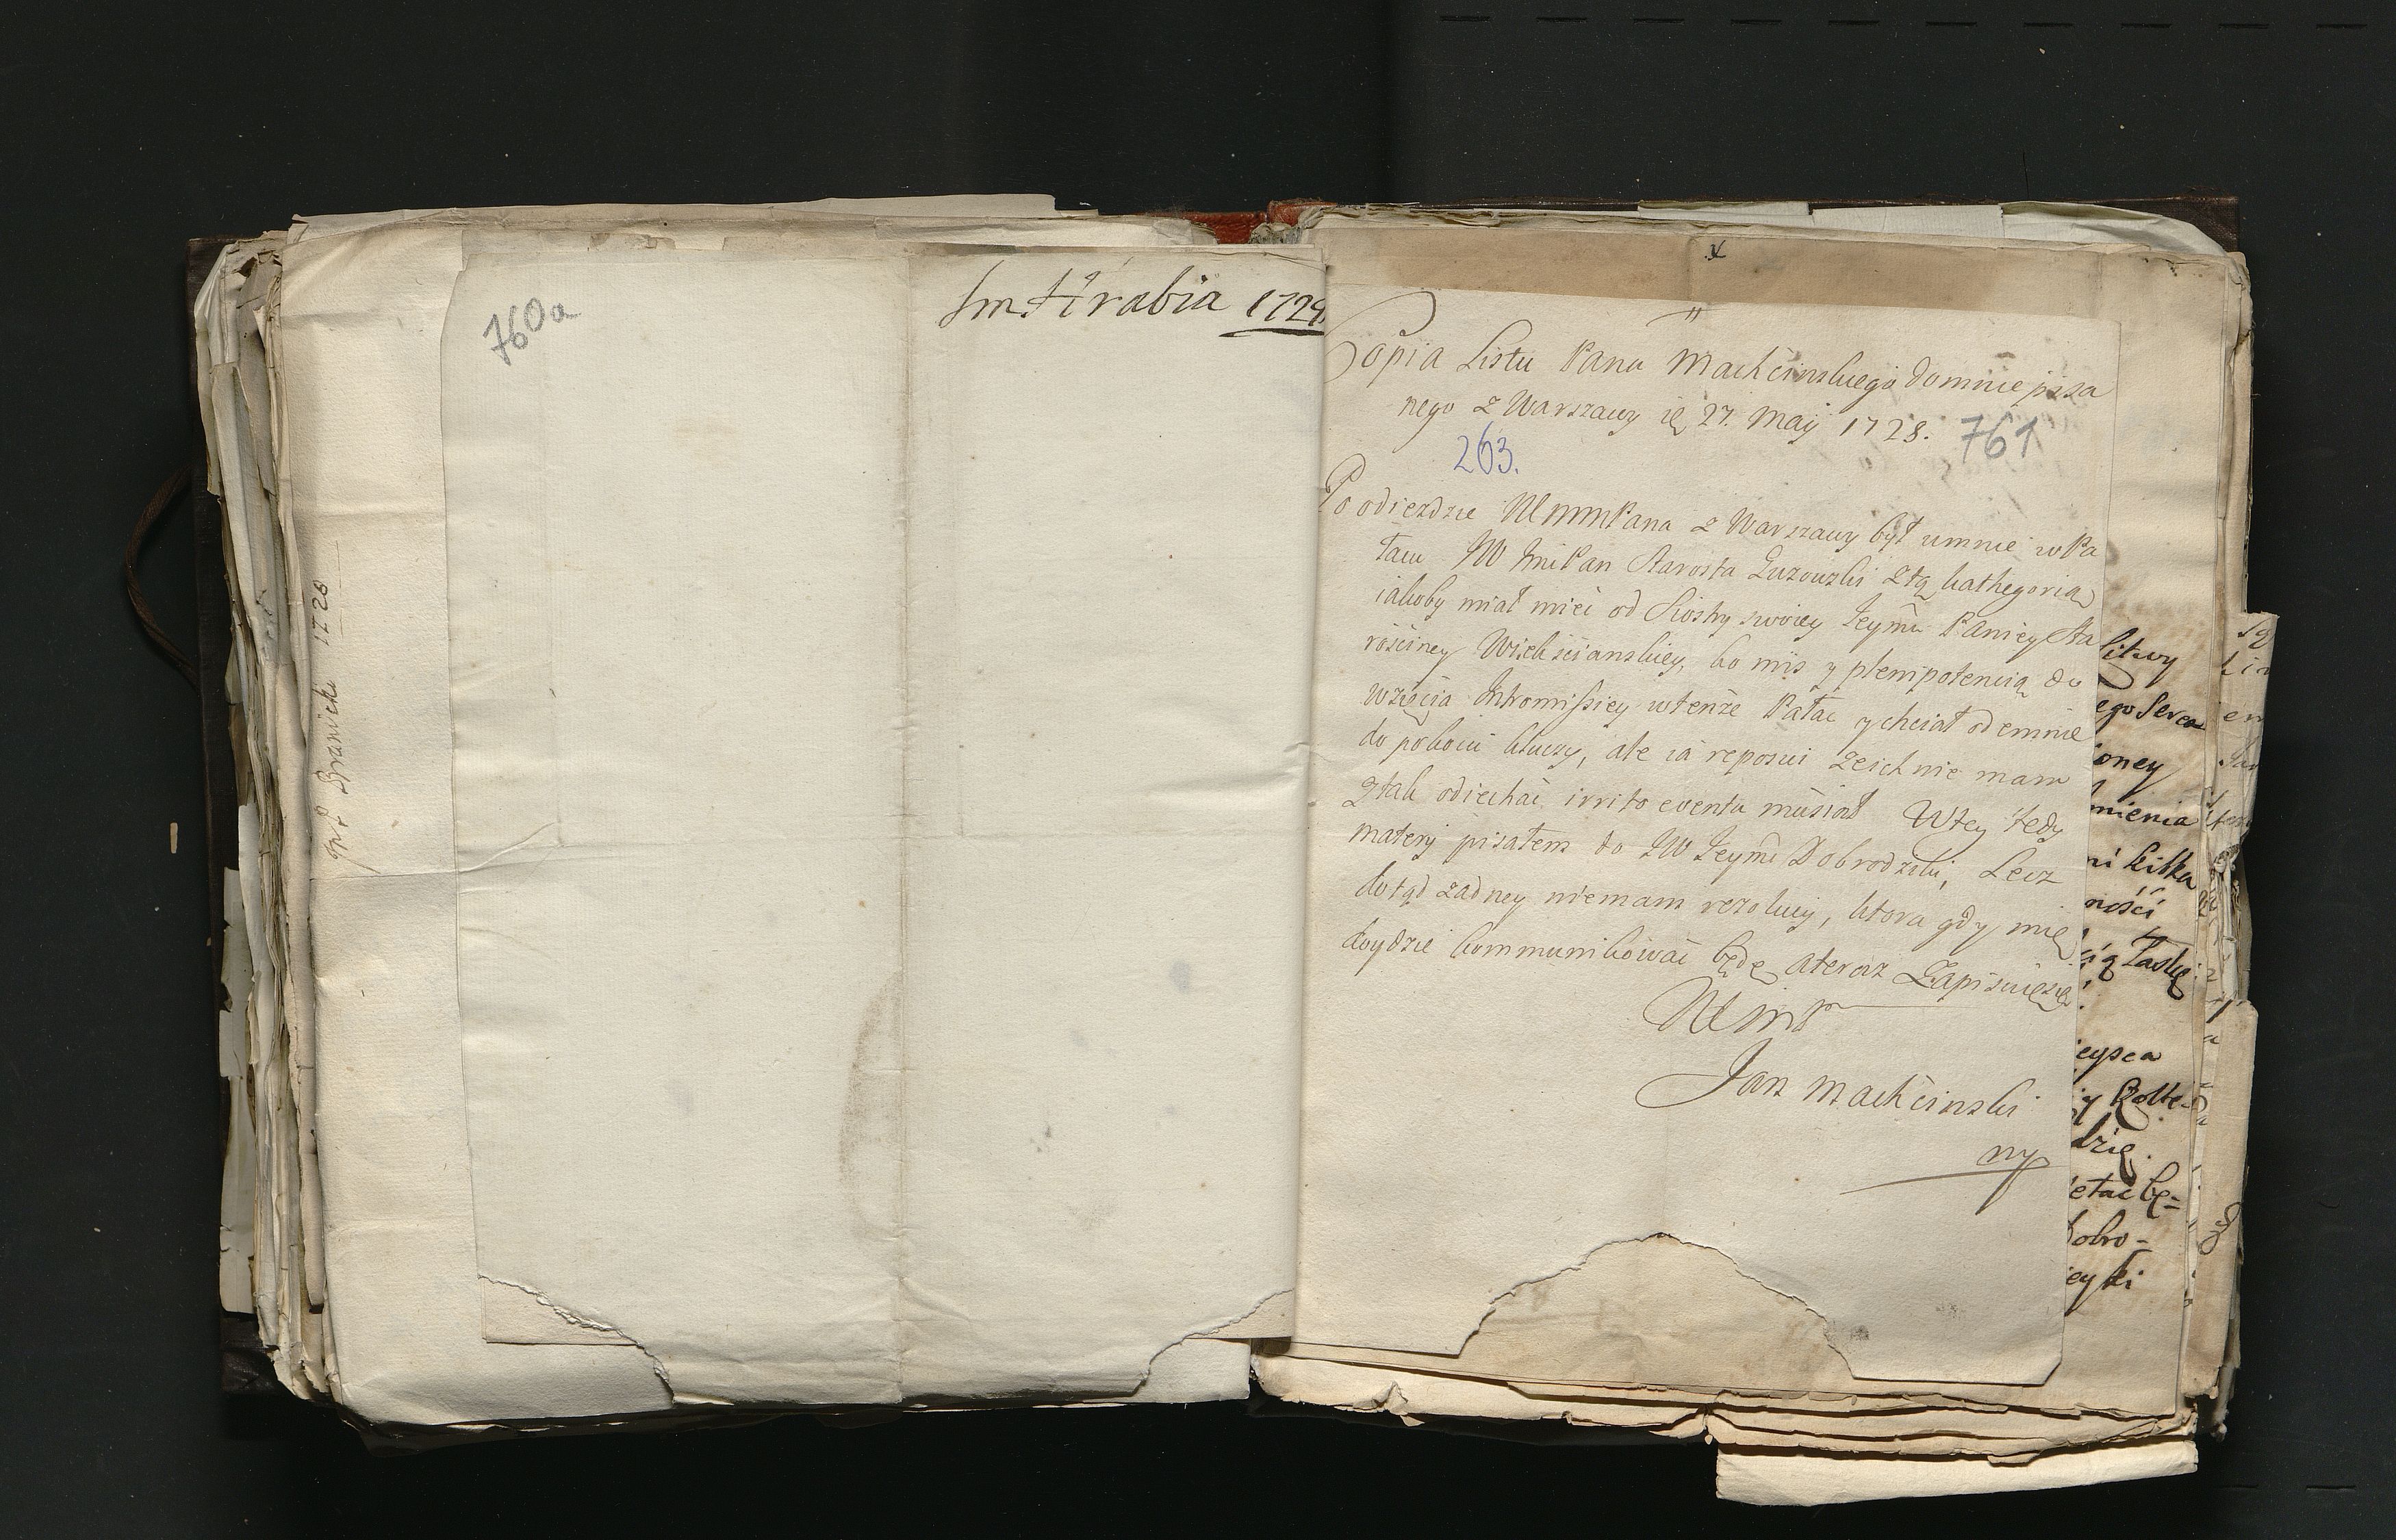 760a
Im Hrabia 1729
Branicki 1728
Copia Listu Pana Machcinskiego do mnie pisa
nego z Warszawy ię 27. Maij 1728.
761
263.
Po odiezdzie WMMPana z Warszawy był umnie w Pa
łacu JW ImPan Starosta Guzowski ztą kathegorią
iakoby miał mieć od Siostry swoiey Jeymci Paniey Sta
rościney Wieliscianskiey, kommis y plenipotencią do
wzięcia Intromissiey wtenże Pałac y chciał odemnie
do pokoiu kluczy, ale ia reposui że ich nie mam
y tak odiechać irrito eventu musiał Wtey tedy
materij pisałem do JW Jeymci Dobrodziki, Lecz
dotąd żadney niemam rezolucij, ktora gdy mię
doydzie kommunikować będę a teraz Zapisuięsię
WMP
Jan Machcinski
mp
litwy
ego Serca
oney
mnienia
ni kilka
ności
cią Łaskę
eysca
y Kolle-
dzię.
etać bę-
Dobro-
eyki